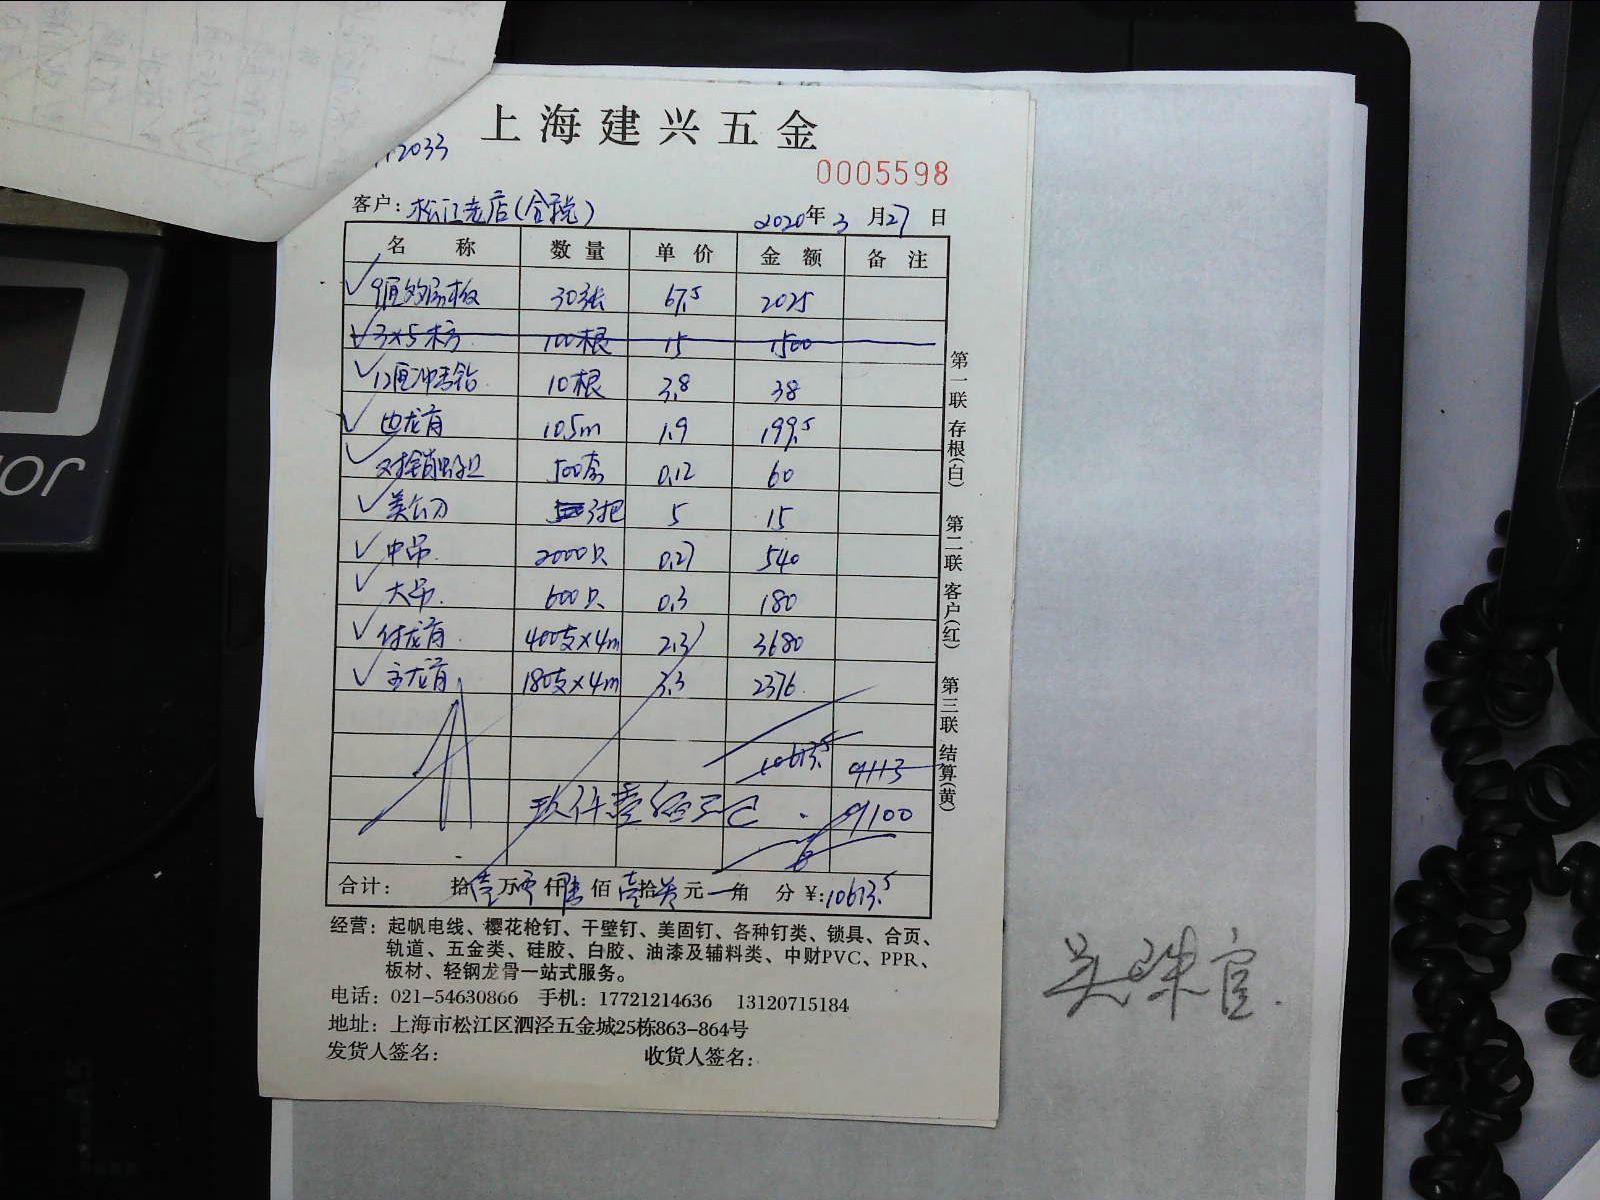 上海建兴五金
2033
0005598
客户：松江老店（含税） 2020年3月27日
名称 数量 单价 金额 备注
9厘多层板 30张 67.5 2025
3×5木方 100根 15 1500
12厘冲击钻 10根 3.8 38
边龙骨 105m 1.9 199.5
对销螺丝 500套 0.12 60
美工刀 3把 5 15
中吊 2000只 0.27 540
大吊 600只 0.3 180
付龙骨 400支×4m 2.3 3680
主龙骨 180支×4m 3.3 2376
10613.5 9113
玖仟壹佰 9100
合计： 拾壹万零仟陆佰壹拾叁元 角 分 ¥:10613.5
第一联 存根(白) 第二联 客户(红) 第三联 结算(黄)
经营：起帆电线、樱花枪钉、干壁钉、美固钉、各种钉类、锁具、合页、
轨道、五金类、硅胶、白胶、油漆及辅料类、中财PVC、PPR、
板材、轻钢龙骨一站式服务。
电话：021-54630866 手机：17721214636 13120715184
地址：上海市松江区泗泾五金城25栋863-864号
发货人签名： 收货人签名：
吴珠官.